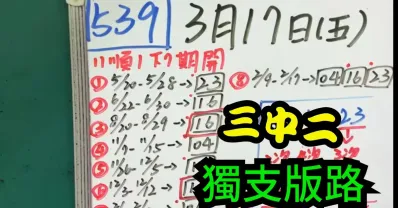 539 3月17日(五)
11順1下7期開
① 5/20-5/28→23
⑧ 2/9-2/17→04 16 23
② 6/22-6/30→16
③ 8/20-8/29→16
④ 11/7-11/15→04
⑤ 11/26-12/5→
⑥ 12/3-12/12→
23
三中二
獨支版路